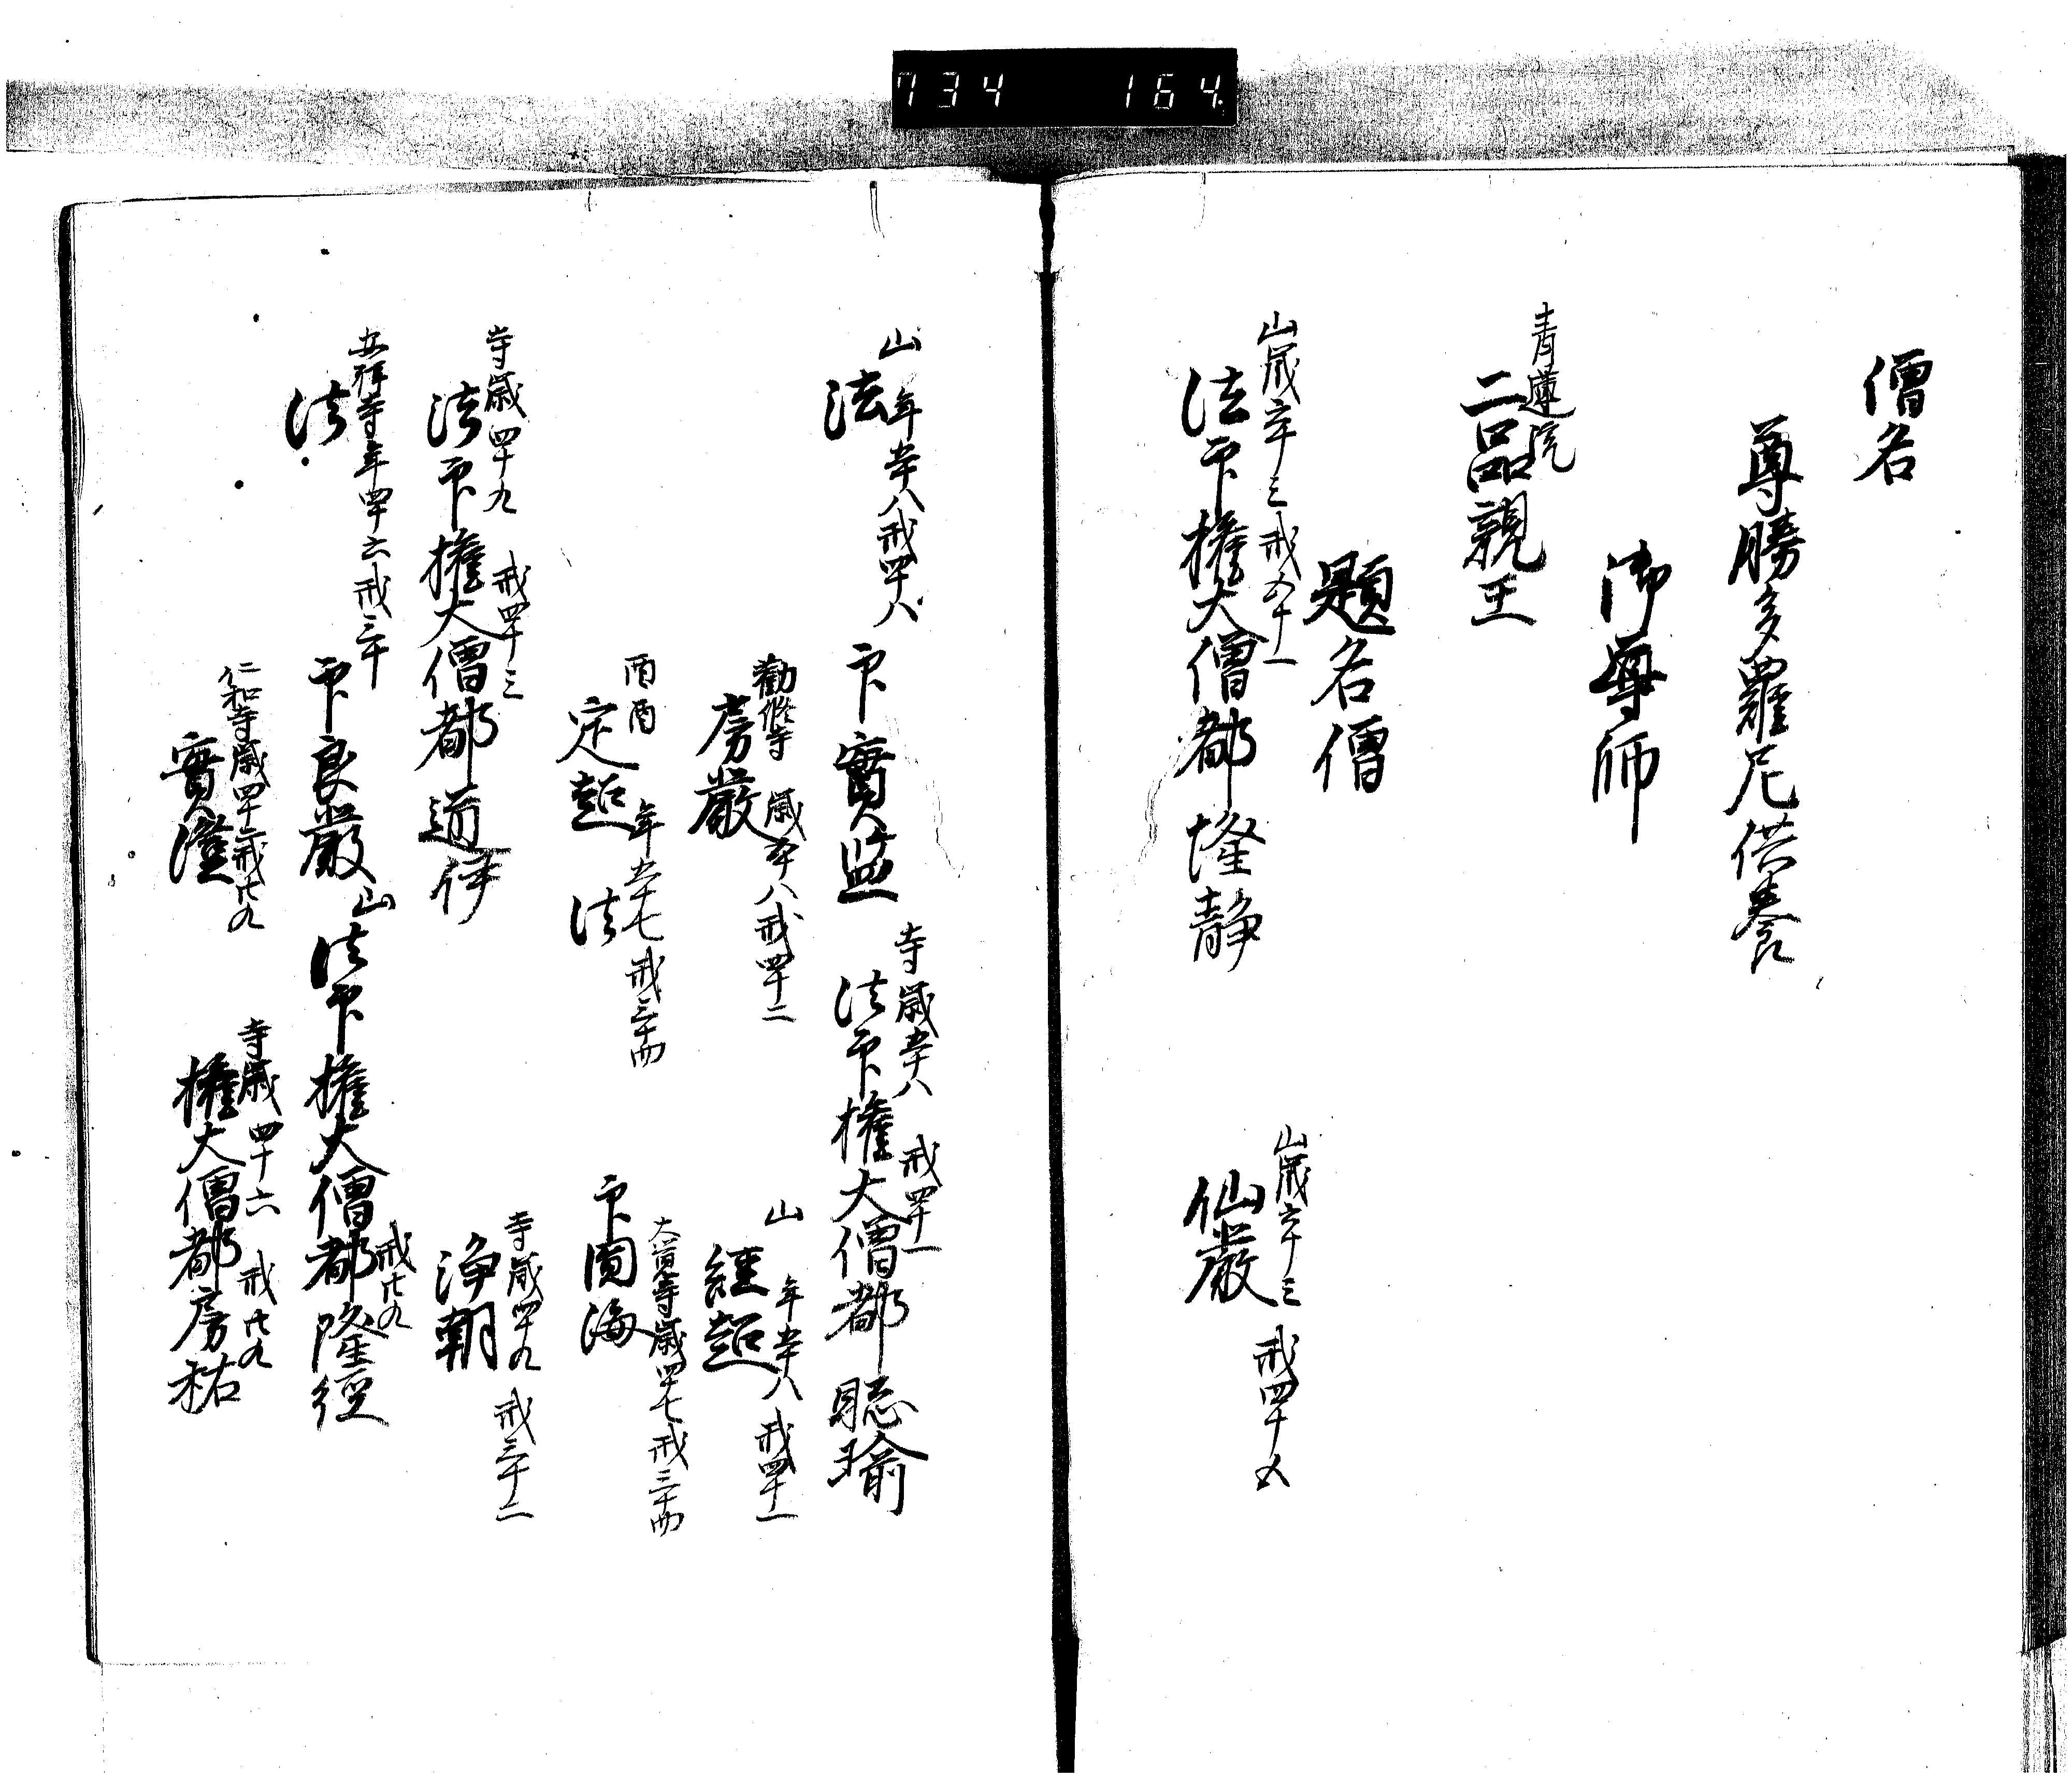 734 164
僧名
尊勝多羅尼供養
御尊師
青蓮院
二品親王
題名僧
山歳六十三 戒五十一
法印権大僧都隆静
山歳六十三 戒四十五
仙嚴
山 年五十八戒四十八
法印實盛
寺歳五十八 戒四十一
法印権大僧都聡瑜
勸修寺 歳五十八戒四十二
房嚴
山 年五十八 戒四十一
經超
酉酉 年五十七 戒三十四
定超
大覚寺歳四十七戒三十四
法印圓海
寺歳四十九 戒四十三
法印権大僧都道伊
寺歳四十九 戒三十二
淨朝
安祥寺年四十六戒三十
法印良嚴
山 戒廿九
法印権大僧都隆從
仁和寺歳四十二戒廿九
實澄
寺歳四十六 戒廿九
権大僧都房祐